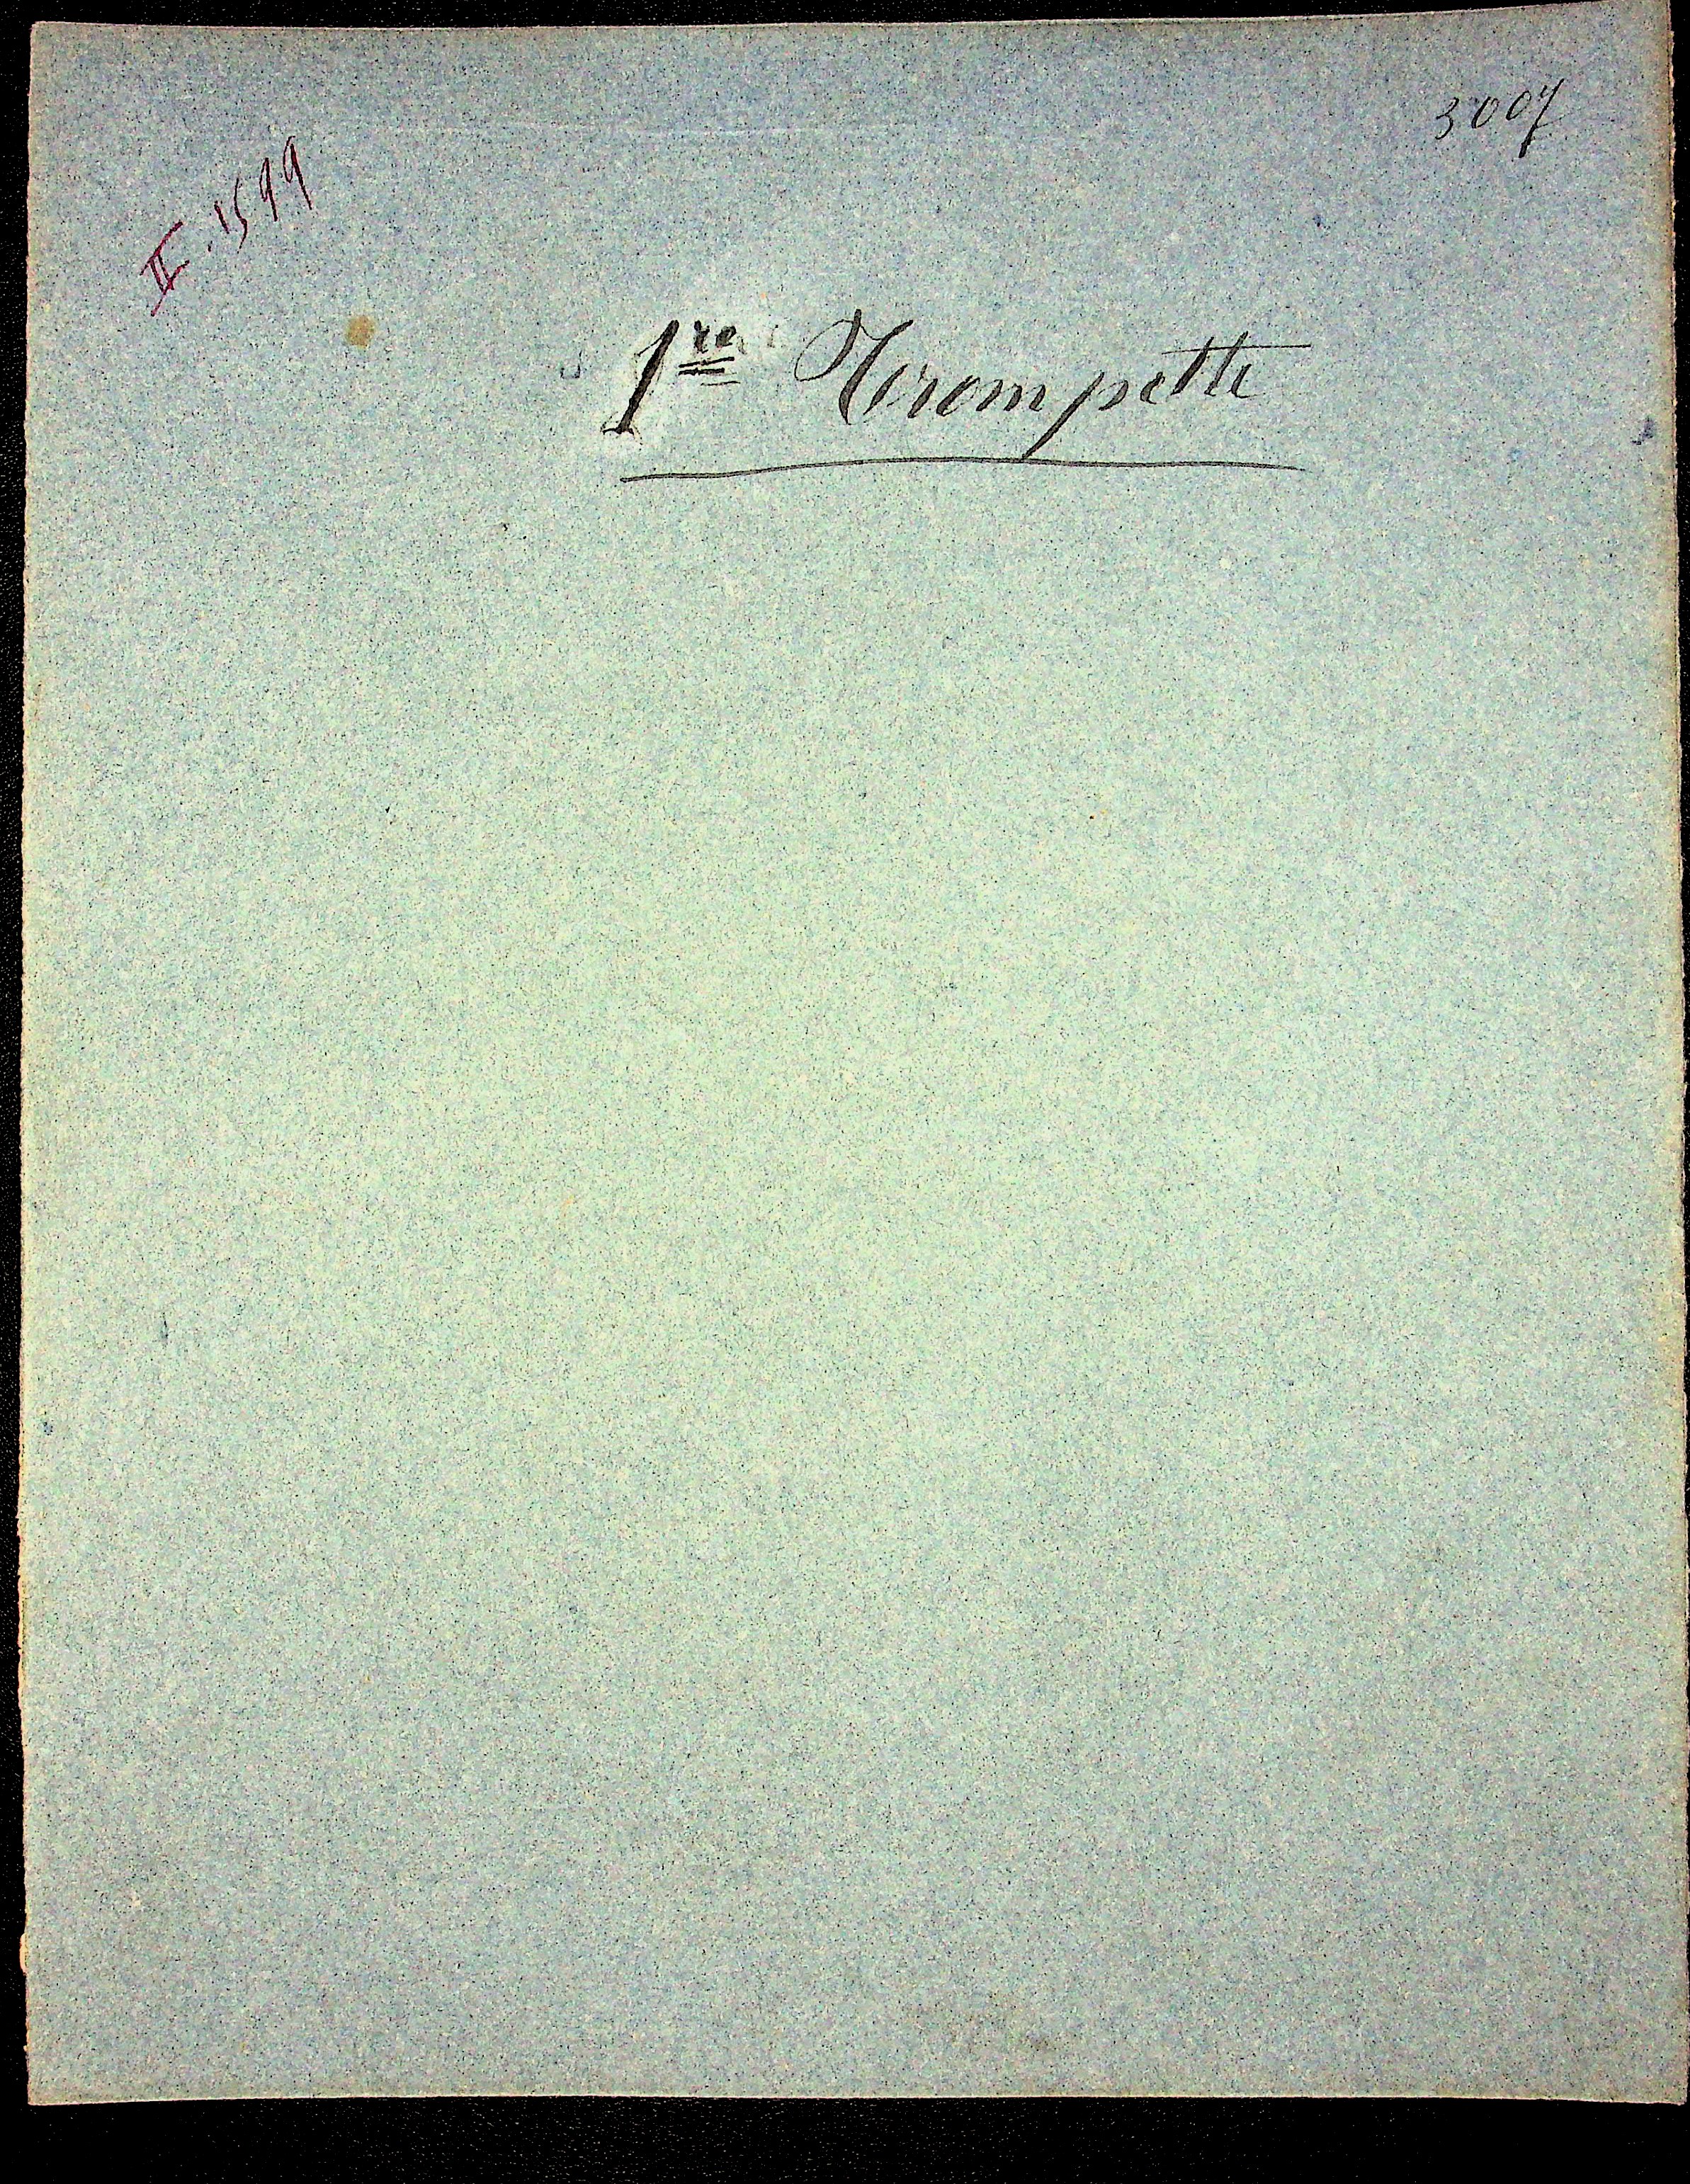 3007
II. 1599
1re Trompette